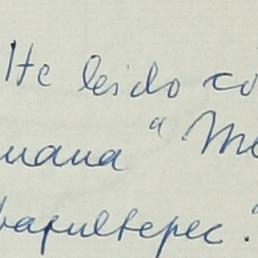 He leido co
mana " Me
hapultepec."